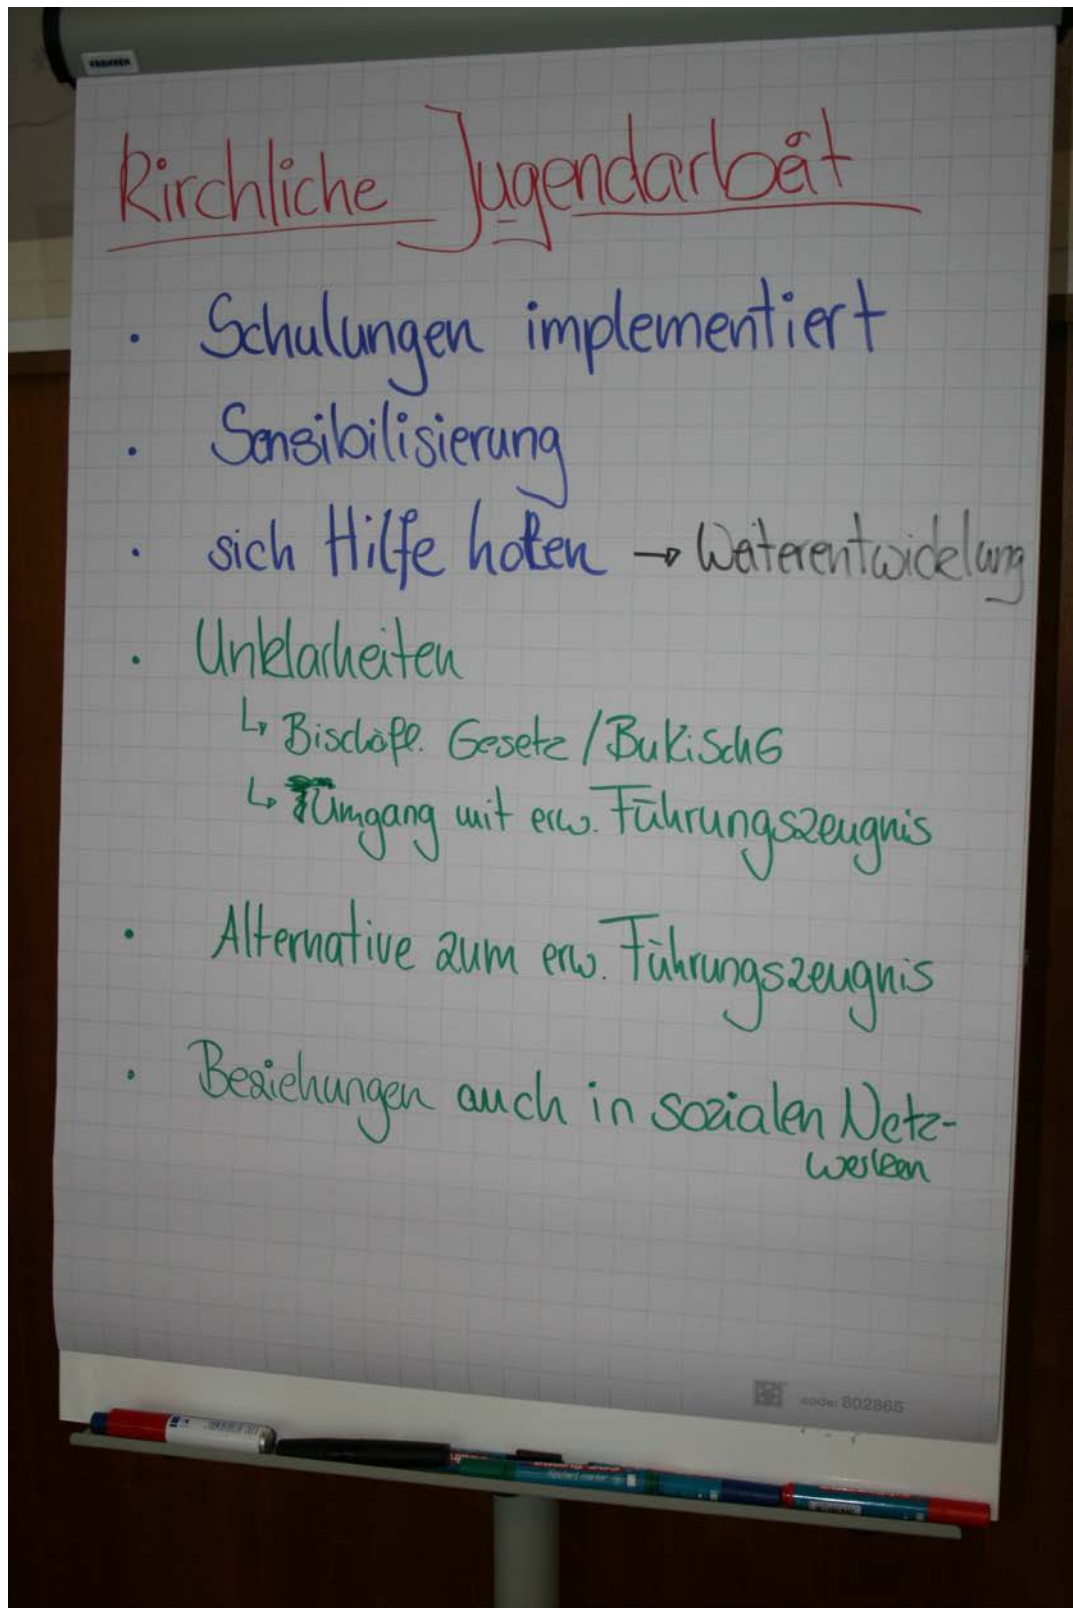 FRANKEN
Kirchliche Jugendarbeit
· Schulungen implementiert
· Sensibilisierung
· sich Hilfe holen → Weiterentwickelung
· Unklarheiten
↳ Bischöfl. Gesetz / BuKiSchG
↳ Umgang mit erw. Führungszeugnis
· Alternative zum erw. Führungszeugnis
· Beziehungen auch in sozialen Netz-
werken
code: 802865